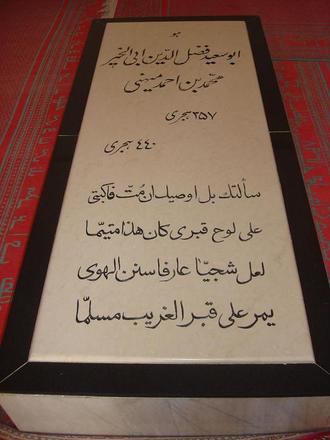 هو
ابوسعید فضل الدین ابی الخیر
محمد بن احمد میهنی
۳۵۷ هجری
۴۴۰ هجری
سألتك بل اوصیك ان مُتّ فاكتبی
علی لوح قبری كان هذا متیّما
لعل شجیّا عارفا سنن الهوی
یمر علی قبر الغریب مسلّما